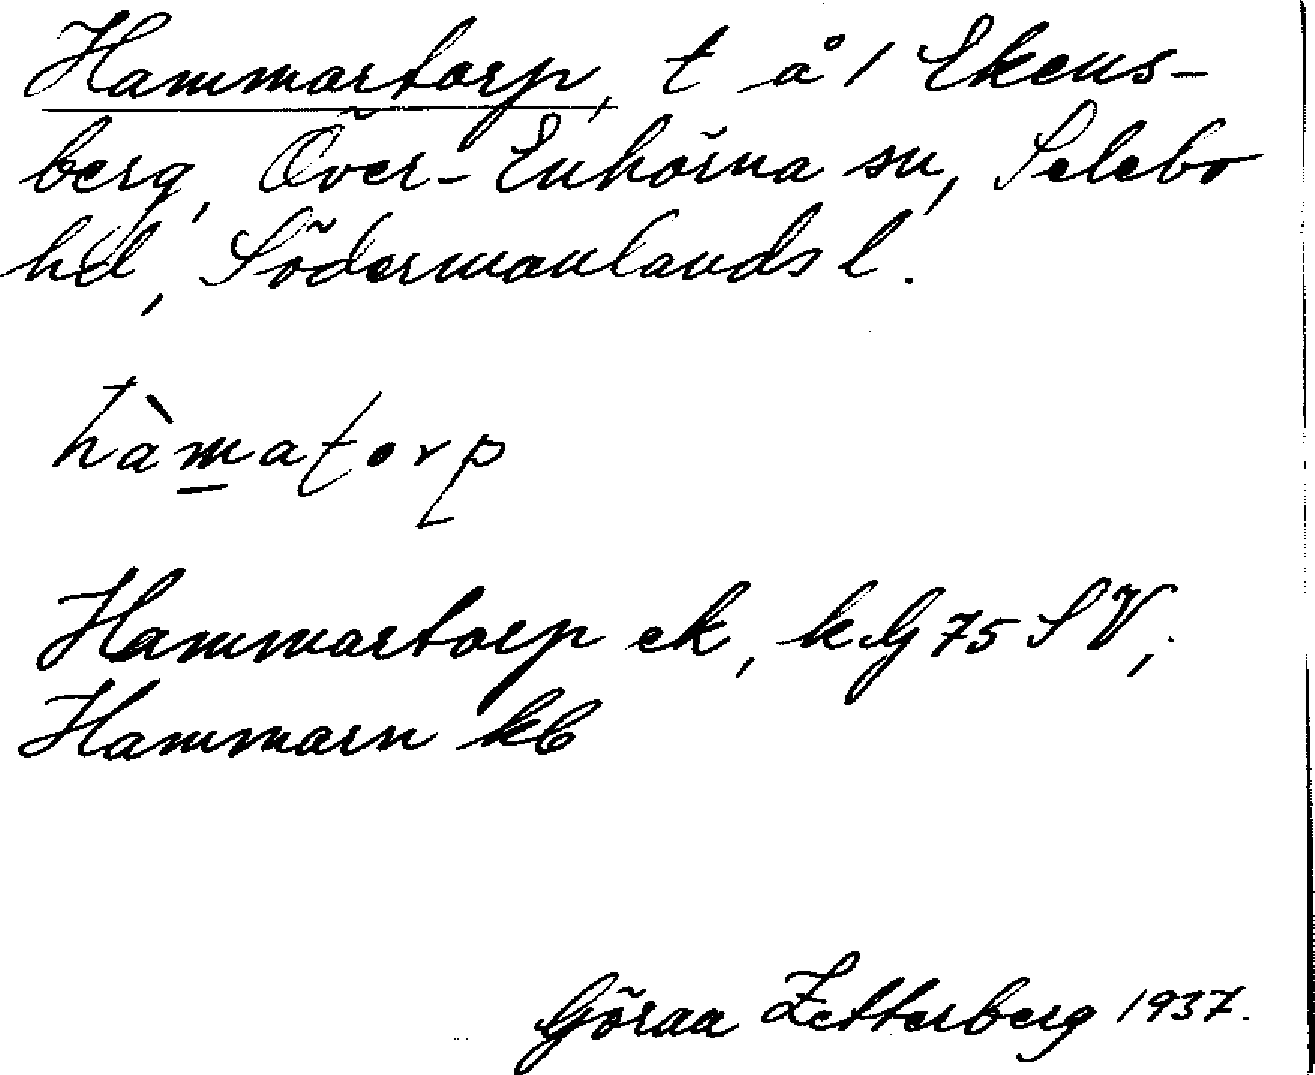 Hammartorp, t å 1 Ekens-
berg, Över-Enhörna sn, Selebo
hd, Södermanlands l.
hàmatorp
Hammartorp ek, k.G 75 SV;
Hammarn kb
Göran Zetterberg 1937.